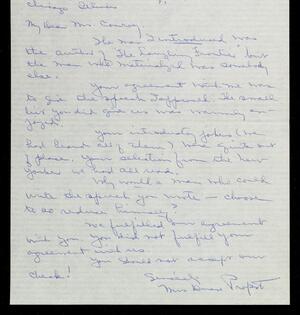 Chicago Illinois
My Dear Mr. Conroy
The man I introduced was
the author of The , but
the man who materialized was somebody
else.
Your agreement with me was
to give the speech I approved. The small
bit you did give us was warmly en-
joyed.
Your introductory jokes (we
had heard all of them) were quite out
of place. Your selection from the New
Yorker we had all read.
Why would a man who could
write the speech you wrote — choose
to so reduce himself?
We fulfilled our agreement
with you. You did not fulfill your
agreement with us.
You should not accept our
check!
Sincerely
Mrs Propst